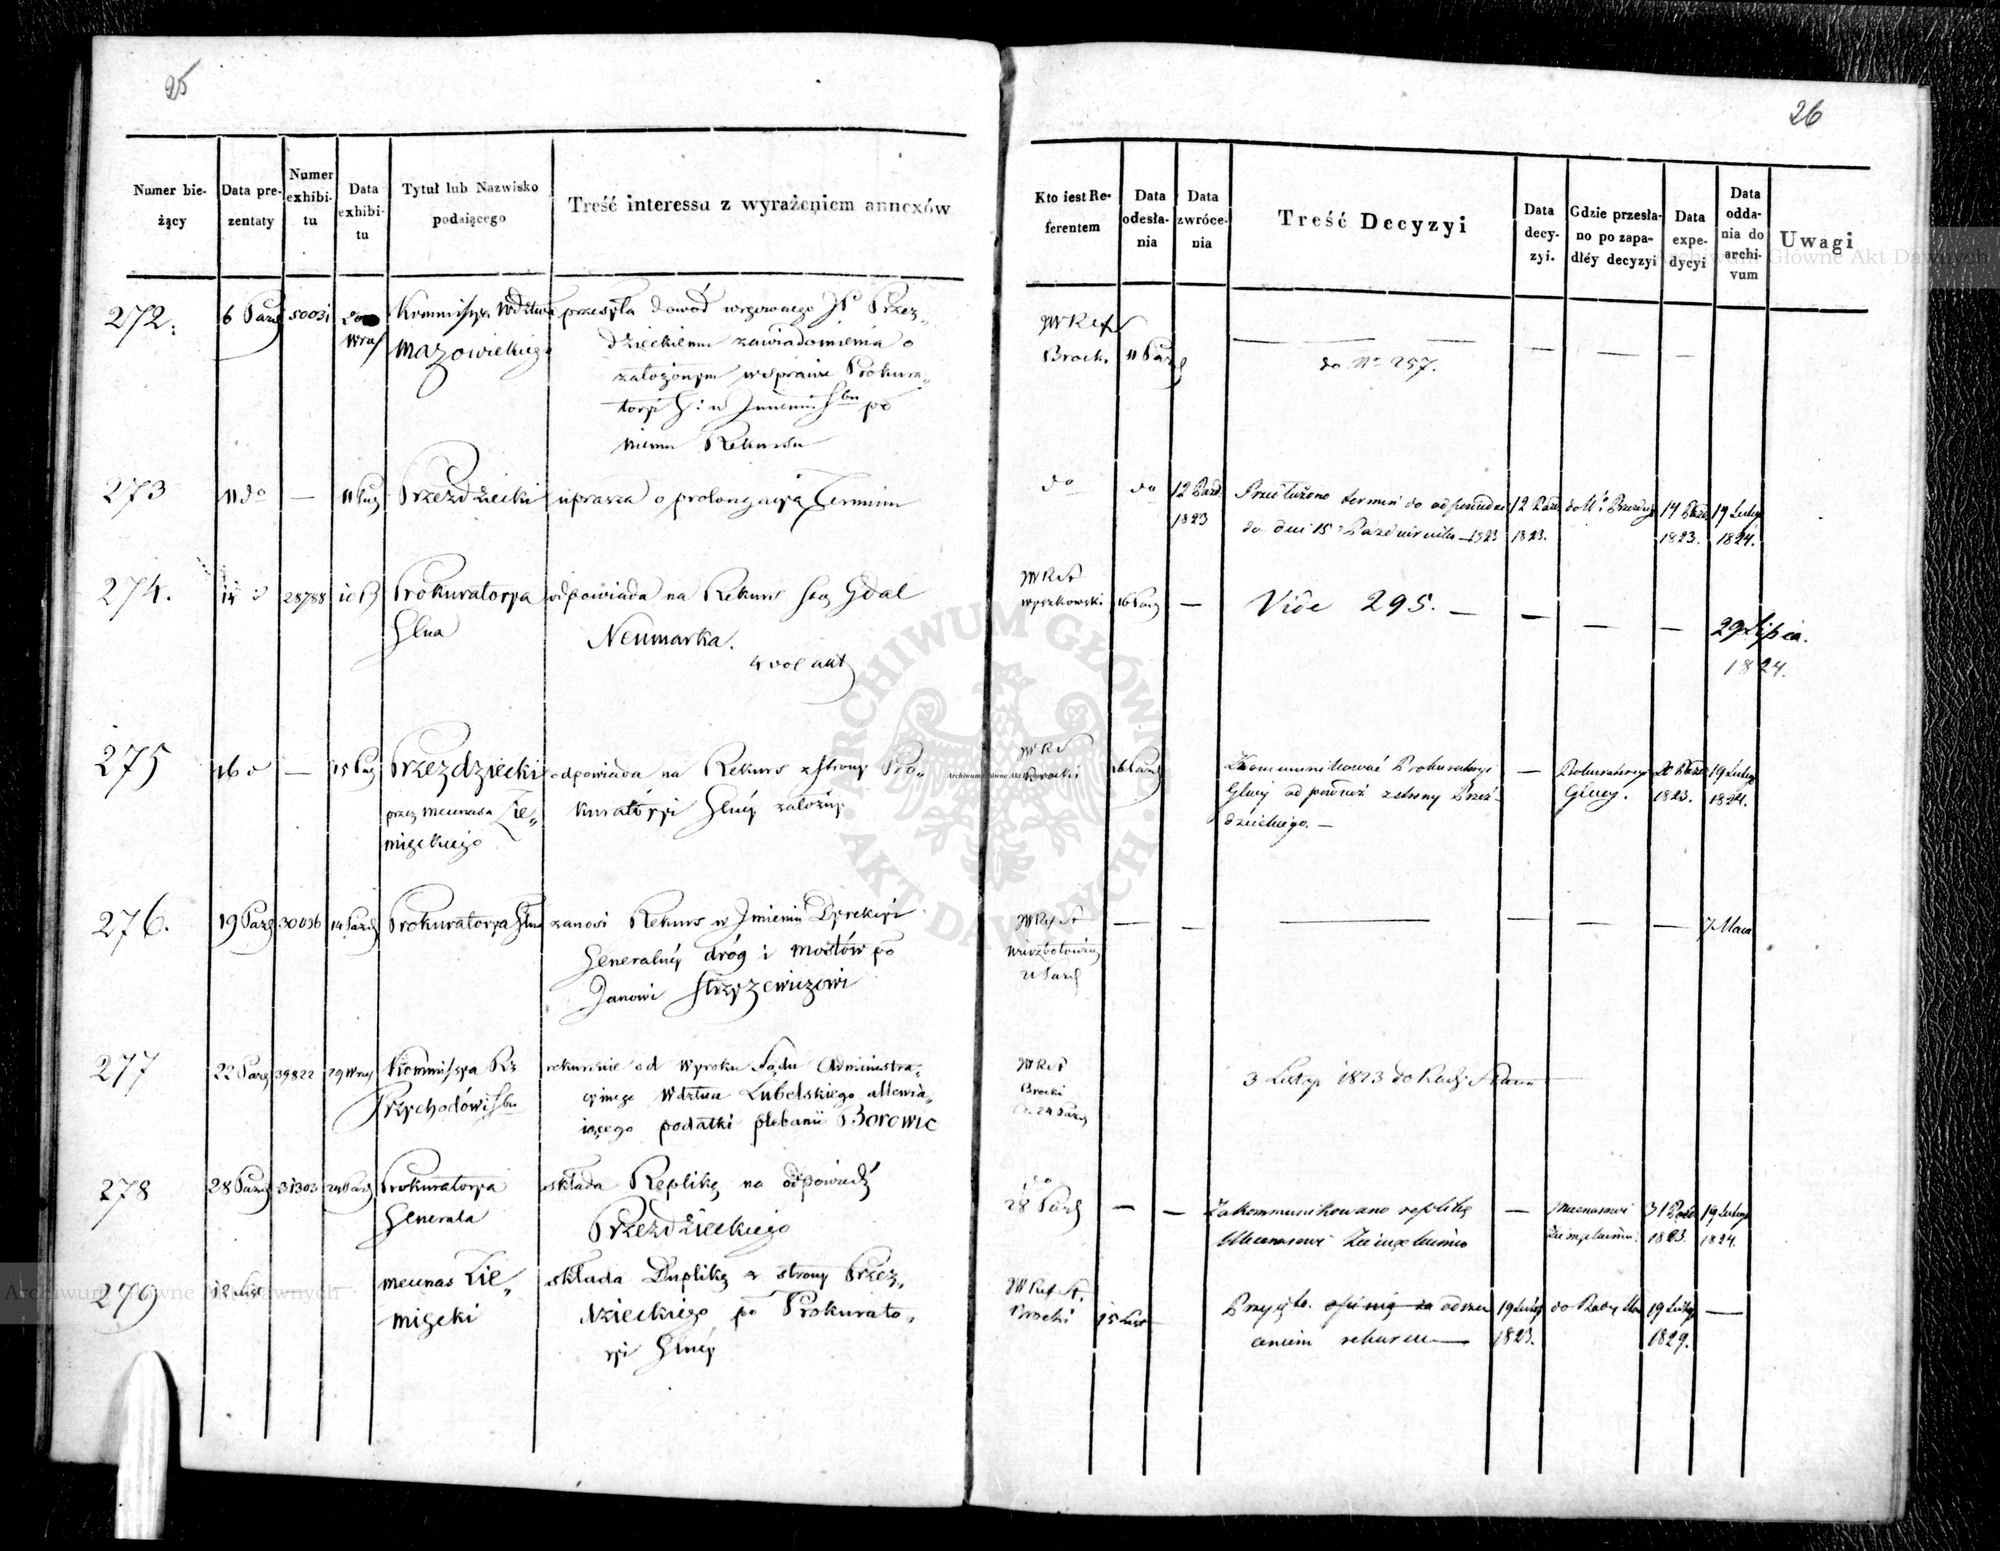 25
Numer bie-
żący
Data pre-
zentaty
Numer
exhibi-
tu
Data
exhibi-
tu
Tytuł lub Nazwisko
podaiącego
Treść interessu z wyrażeniem annexów
272.
6 Paźd
50031
Kommissya Wdztwa
Mazowieckiego
przesyła dowód wręczonego JP Przez-
dzieckiemu zawiadomienia o
założonym w sprawie Prokura-
toryi G: w Jmieniu Sbu po
niemu Rekursu
273
11 do
—
11 Paź
Przezdziecki
uprasza o prolongacyą Terminu
274.
14 d
28788
10 P
Prokuratorya
Glna
odpowiada na Rekurs Star Gdal
Neumarka.
4 vol akt
275
16 d
—
15 Paź
Przezdziecki
przez mecenasa Zie-
mięckiego
odpowiada na Rekurs z strony Pro-
kuratoryi Glnéy założony
276.
19 Paźd
30036
14 Paźd
Prokuratorya Glna
zanosi Rekurs w Jmieniu Dyrekcyi
Generalnéy dróg i mostów po
Janowi Strzyzewiczowi
277
22 Paźd
39822
29 Wrześ
Kommissya Rz
Przychodów i Sbu
rekurs od Wyroku Sądu Administra-
cyinego Wdztwa Lubelskiego
podatki plebanii Borowic
278
28 Paźd
31303
24 Paźd
Prokuratorya
Generalna
składa Replikę na odpowiedź
Przezdzieckiego
279
12 List
mecenas Zie-
mięcki
składa Duplikę z strony Przez-
dzieckiego po Prokurato-
ryi Glnéy
26
Kto iest Re-
ferentem
Data
odesła-
nia
Data
zwróce-
nia
Treść Decyzyi
Data
decy-
zyi.
Gdzie przesła-
no po zapa-
dłéy decyzyi
Data
expe-
dycyi
Data
odda-
nia do
archi-
vum
Uwagi
JW Ref
Brocki
11 Paźd
do No 257.
do
do
12 Paźd.
1823
Przedłużono termin do odpowiedzi
do dnia 15 Października 1823
12 Paźd
1823.
14 Paźd
1823.
19 Lutego
1824.
JW Ref
Wyszkowski
16 Paźd
—
Vide 295. —
—
—
—
29 Lipca.
1824.
JW Ref
Brocki
16 Paźd
Zkommunikować Prokuratoryi
Glney odpowiedź z strony Przez-
dzieckiego. —
—
Prokuratoryi
Glney.
Paźd
1823.
19 Lutego
1824.
JW Ref St
Wierzbołowicz
21 Paźd
—
—
—
—
—
—
7 Maia
JW Ref
Brocki
24 Paźd
3 Listop 1823 do Rady Stanu
do
28 Paźd
—
—
Zakommunikowano replikę
Mecenasowi Ziemięckiemu
—
Mecenasowi
Ziemięckiemu.
31 Paźd
1823.
19 Lutego
1824.
JW Ref St.
Brocki
15 List
Przyięto odrzu
ceniem rekursu —
19 Lutego
1823.
do Rady Stanu
19 Lutego
1829.
—
Archiwum Główne Akt Dawnych
ARCHIWUM GŁÓWNE
AKT DAWNYCH
Archiwum Główne Akt Dawnych
Archiwum Główne Akt Dawnych